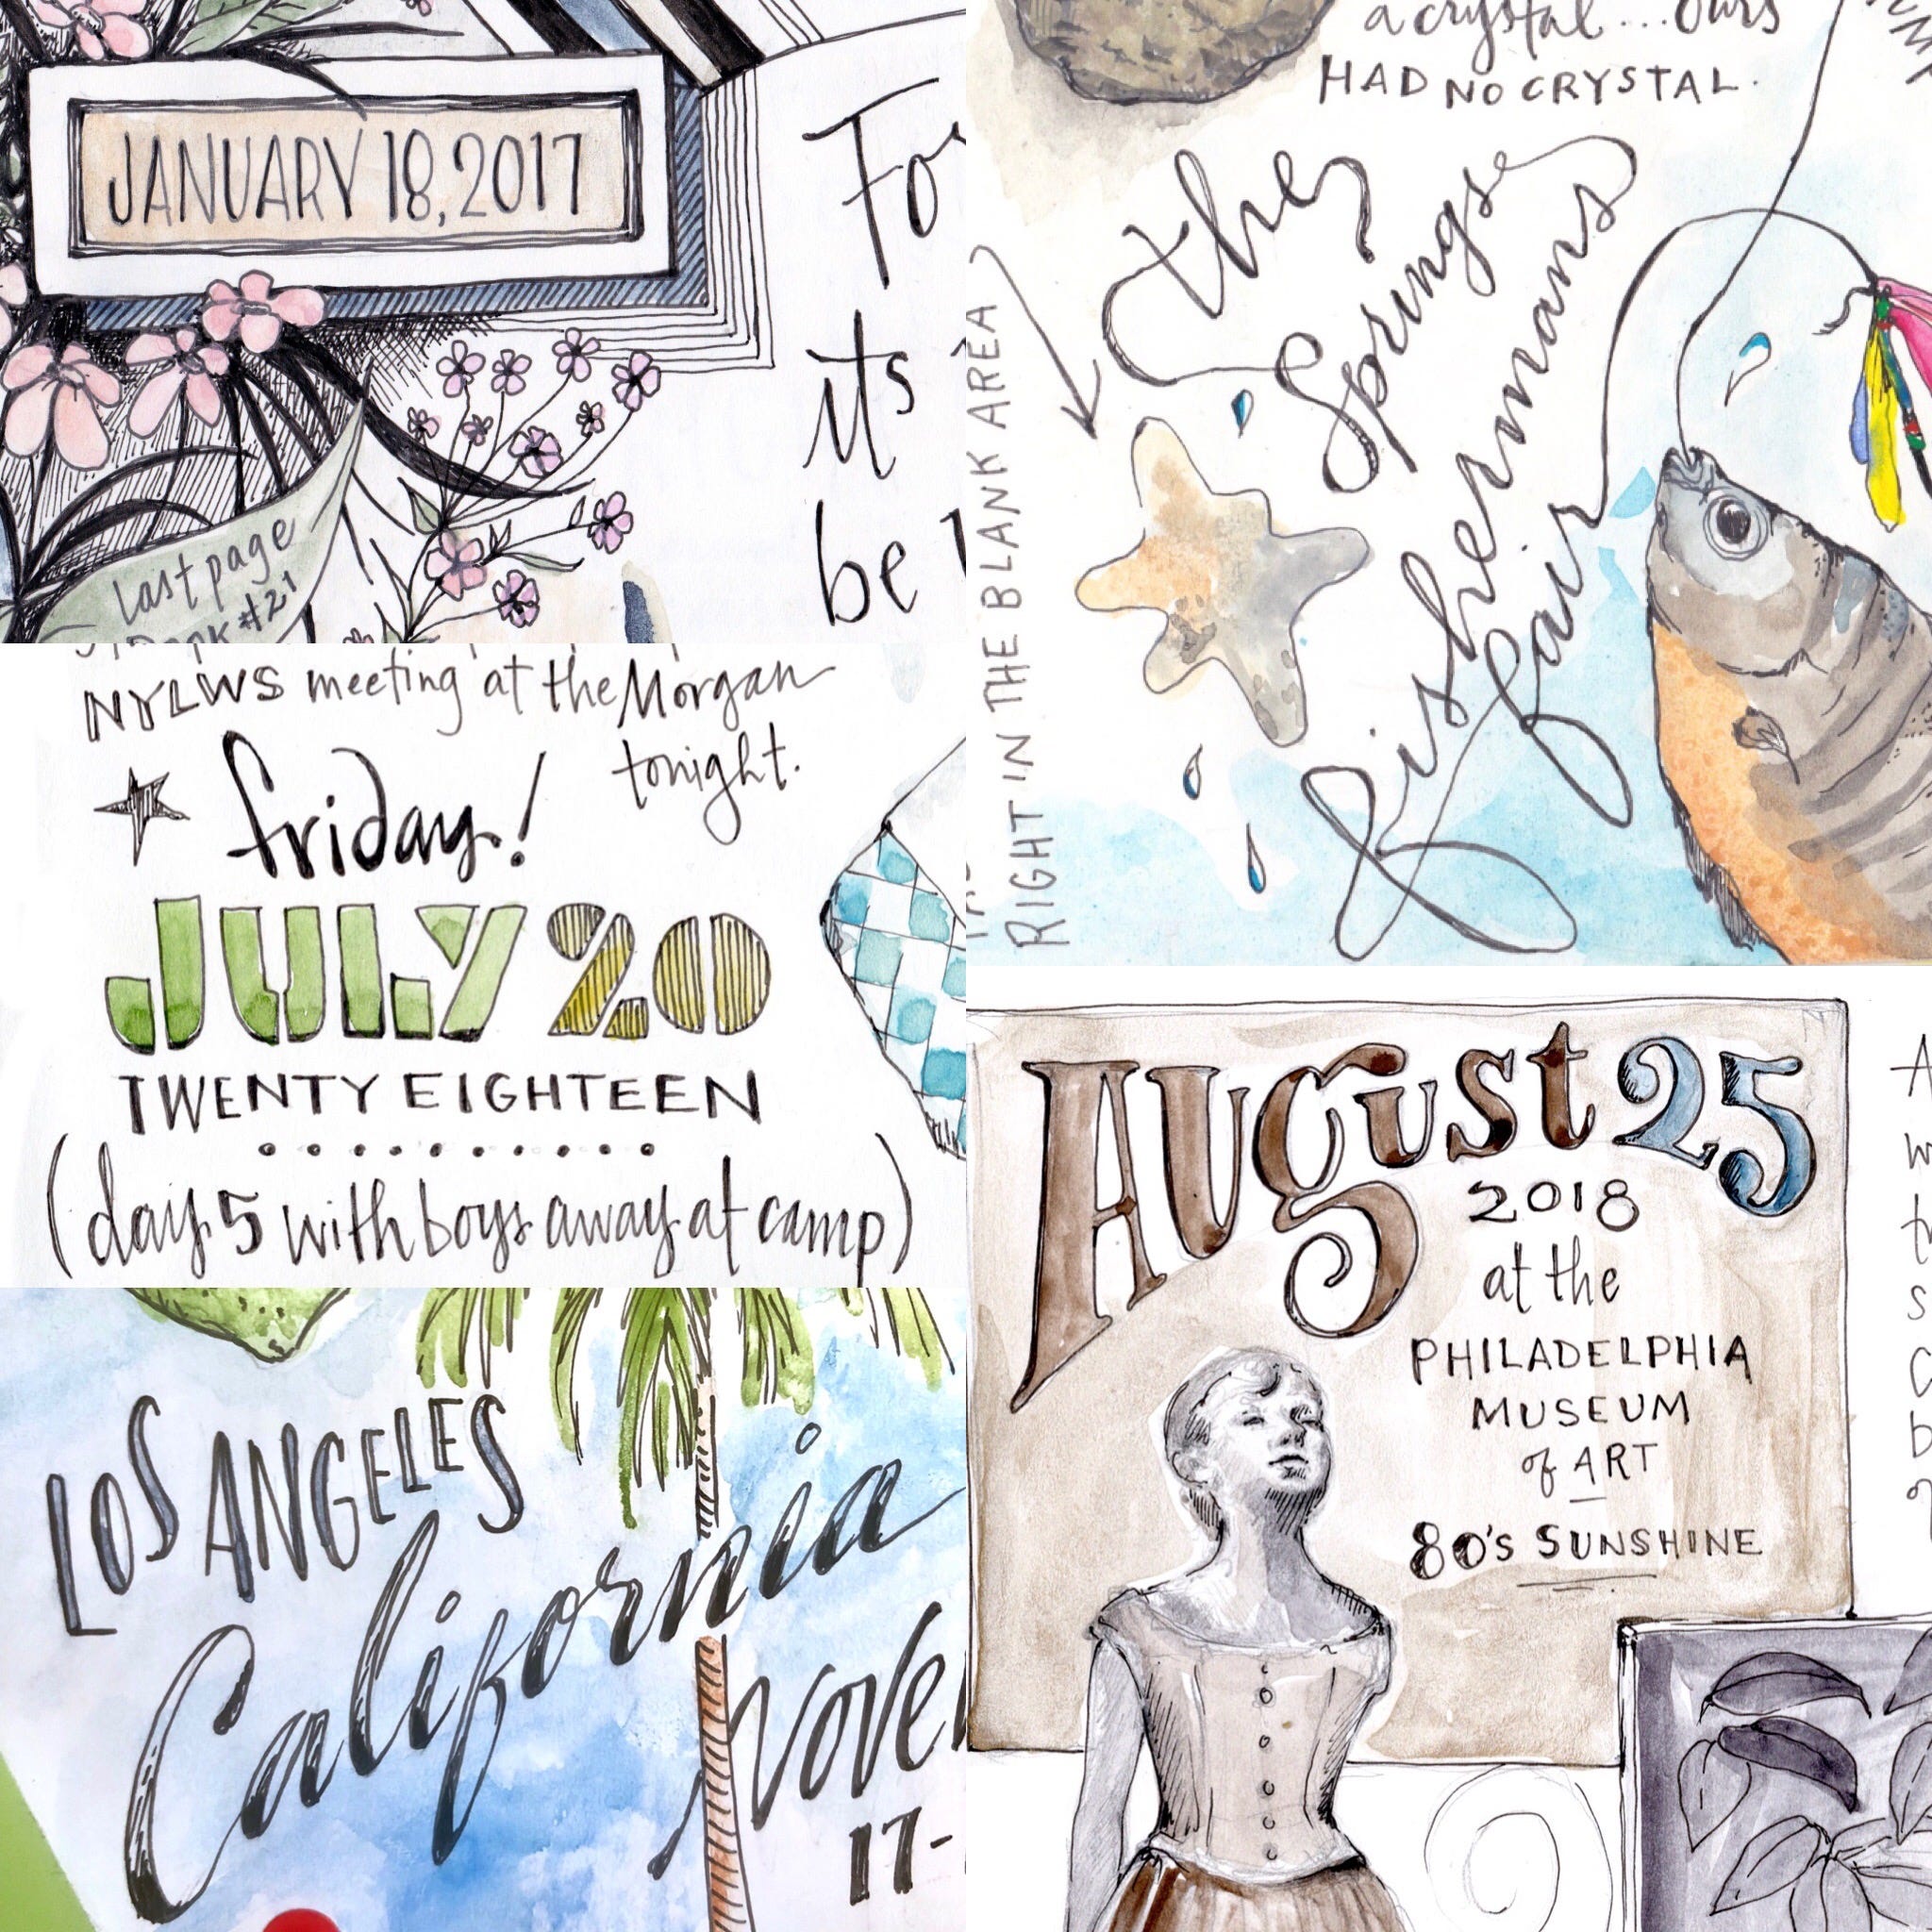 JANUARY 18, 2017
last page
#21
its
be
a crystal...ours
HAD NO CRYSTAL.
RIGHT IN THE BLANK AREA
the
Springs
fishermans
fair
NYLWS meeting at the Morgan
tonight.
friday!
JULY 20
TWENTY EIGHTEEN
(day 5 with boys away at camp)
August 25
2018
at the
PHILADELPHIA
MUSEUM
of ART
80's SUNSHINE
LOS ANGELES
California
17-